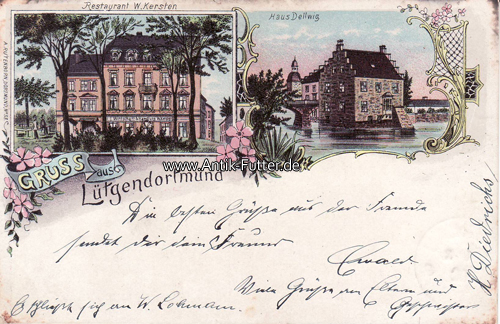 Restaurant W. Kersten
Haus Dellwig
www.Antik-Futter.de
GRUSS aus
Lütgendortmund
Die besten Grüße aus der Fremde
sendet dir dein Freund
Ewald
Viele Grüße an Eltern und
Geschwister
Es schließt sich an W. Lohmann.
H Diedrichs